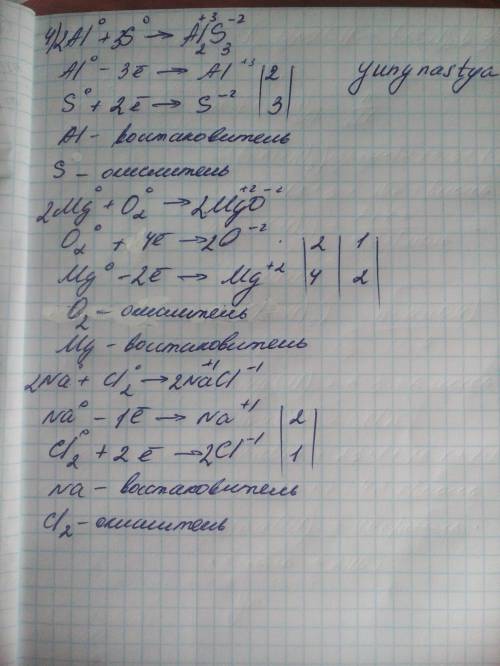 4) 2Al⁰ + 3S⁰ → Al₂⁺³S₃⁻²
Al⁰ - 3ē → Al⁺³ | 2 |
yunynastya
S⁰ + 2ē → S⁻² | 3 |
Al - востановитель
S - окислитель
2Mg⁰ + O₂⁰ → 2Mg⁺²O⁻²
O₂⁰ + 4ē → 2O⁻² | 2 | 1 |
Mg⁰ - 2ē → Mg⁺² | 4 | 2 |
O₂ - окислитель
Mg - востановитель
2Na⁰ + Cl₂⁰ → 2Na⁺¹Cl⁻¹
Na⁰ - 1ē → Na⁺¹ | 2 |
Cl₂⁰ + 2ē → 2Cl⁻¹ | 1 |
Na - востановитель
Cl₂ - окислитель